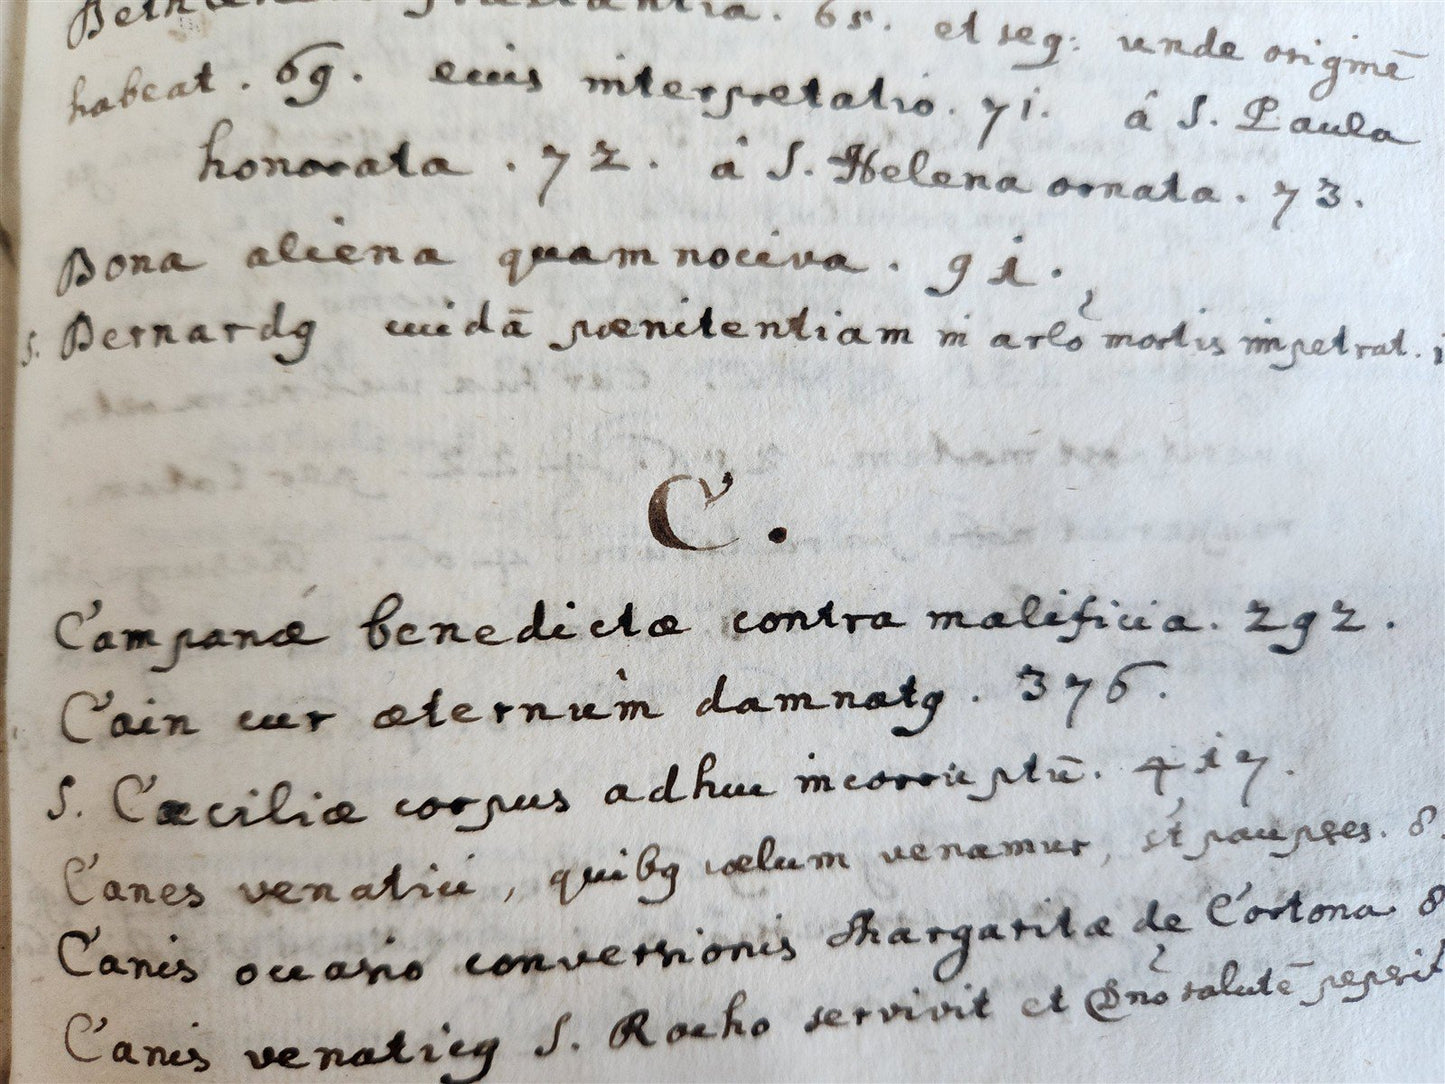 præstantia. 65. et seq: unde originē
habeat. 69. eius interpretatio. 71. â S. Paula
honorata. 72. â S. Helena ornata. 73.
Bona aliena quam nociva. 91.
S. Bernardꝯ cuidā pœnitentiam in arlo mortis impetrat.
C.
Campanæ benedictæ contra maleficia. 292.
Cain cur æternùm damnatꝯ. 376.
S. Cæciliæ corpus adhuc incorruptū. 417.
Canes venatici, quibꝯ cœlum venamur, st paupꝑes. 8
Canis occasio conversionis Margaritæ de Cortona. 8
Canis venaticꝯ S. Rocho servivit et Dno salutē peperit